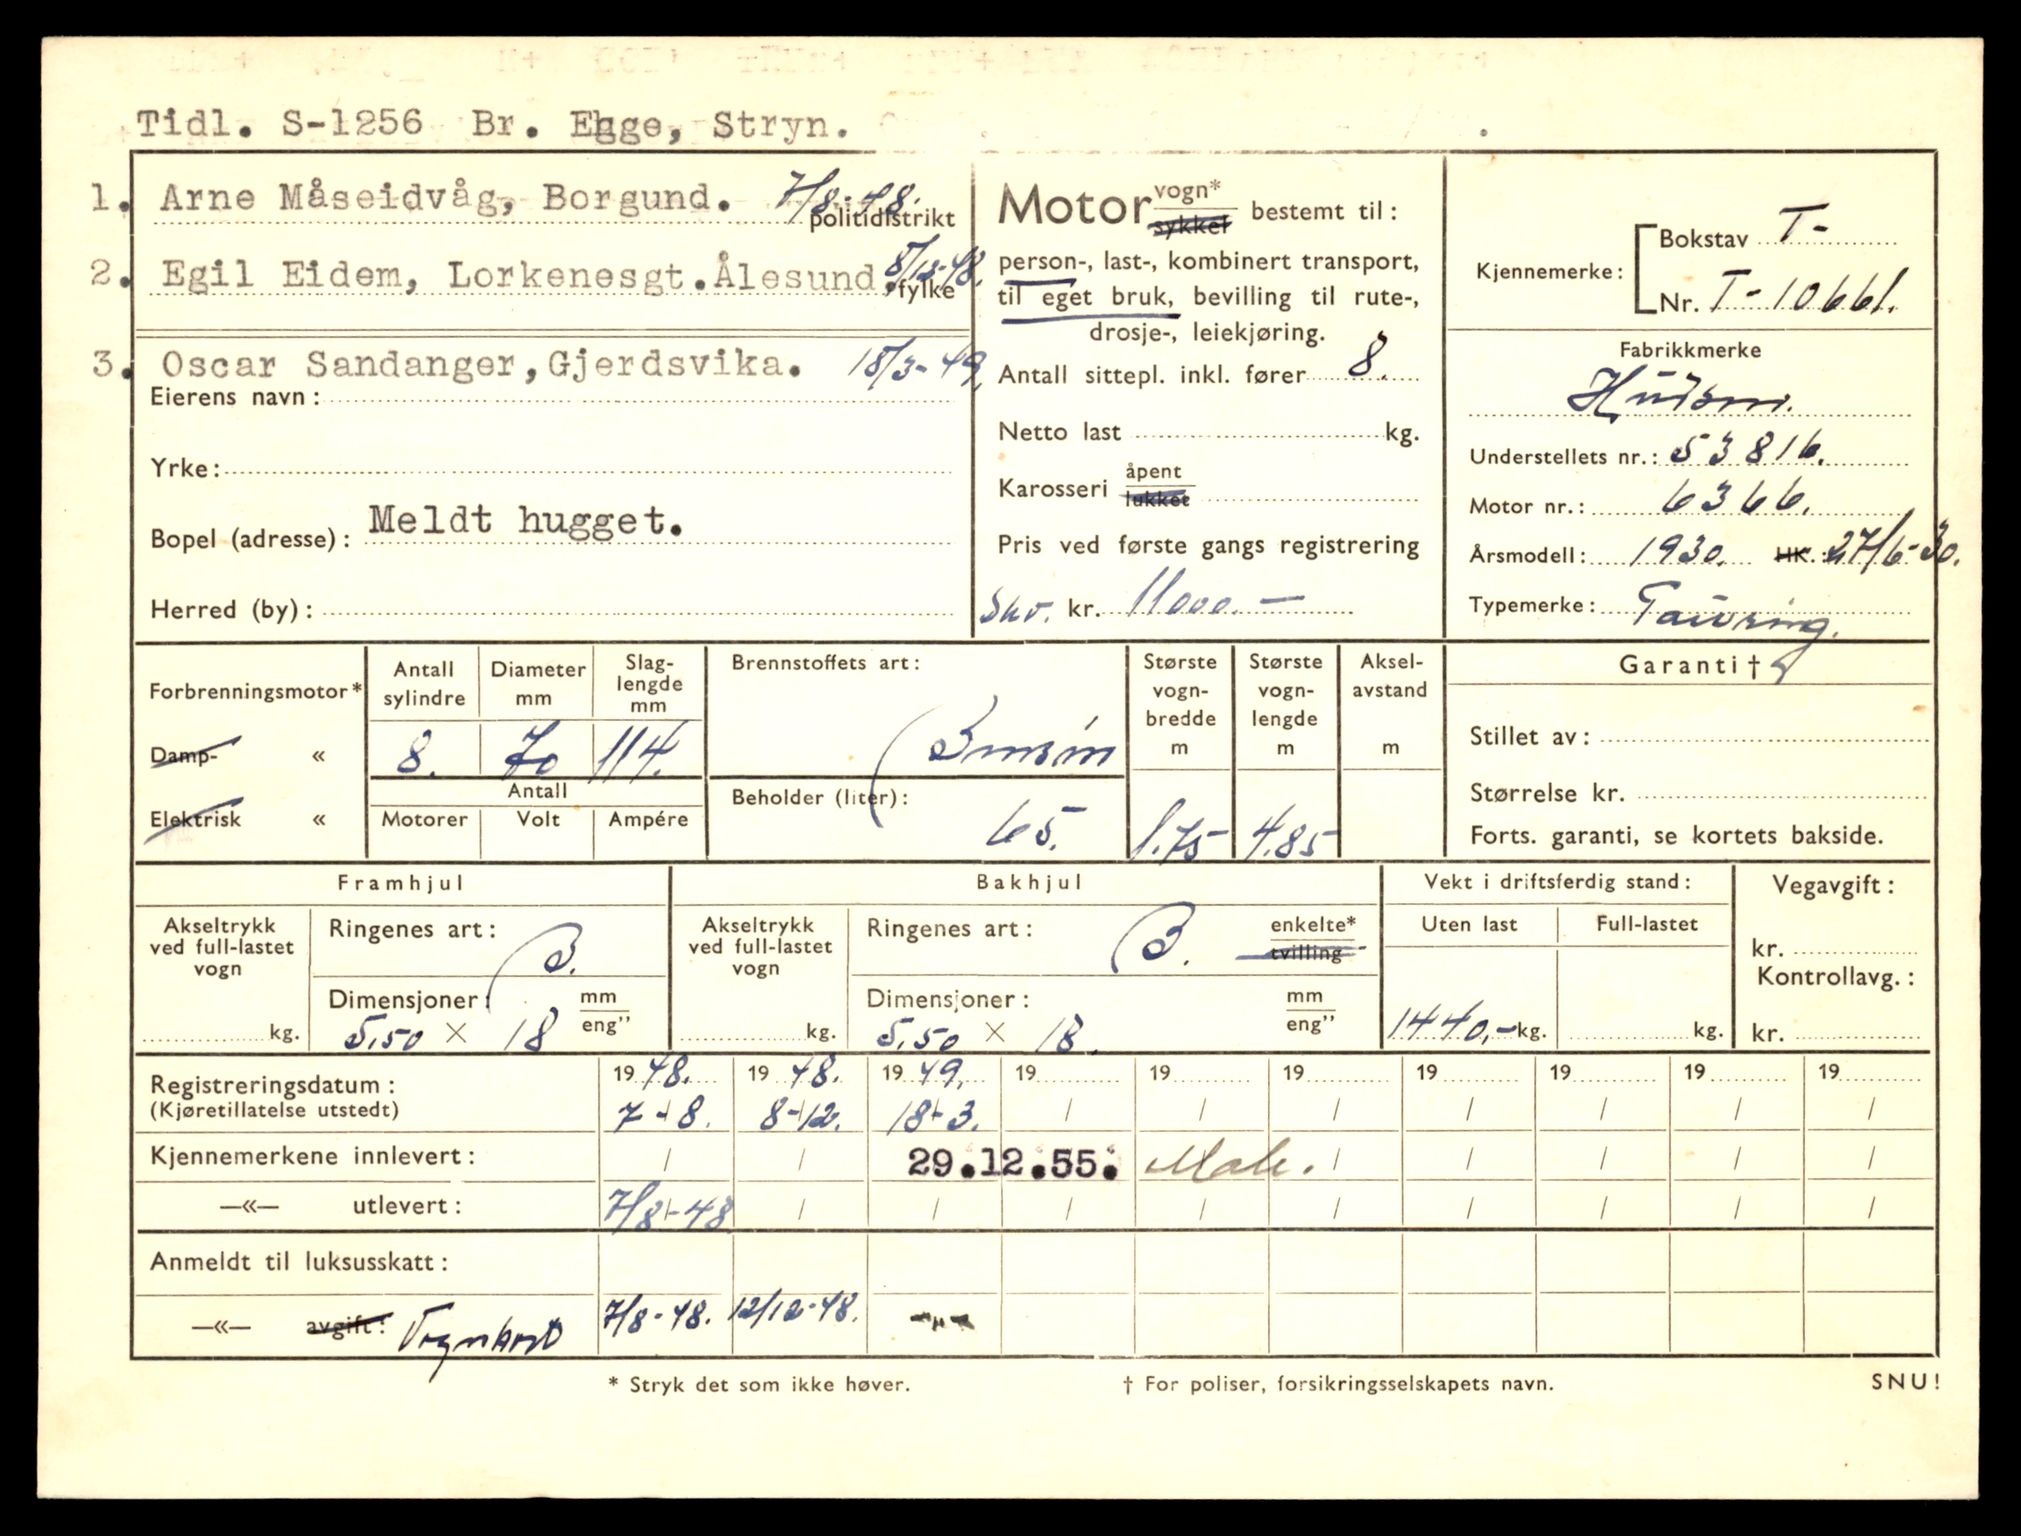 Tidl. S-1256 Br. Egge, Stryn.
1. Arne Måseidvåg, Borgund. 7/8-48.
politidistrikt
2. Egil Eidem, Lorkenesgt. Ålesund. 8/12-48.
fylke
3. Oscar Sandanger, Gjerdsvika. 18/3-49.
Eierens navn:
Yrke:
Bopel (adresse): Meldt hugget.
Herred (by):
Motor vogn* sykkel bestemt til:
person-, last-, kombinert transport,
til eget bruk, bevilling til rute-,
drosje-, leiekjøring.
Antall sittepl. inkl. fører 8.
Netto last kg.
Karosseri åpent lukket
Pris ved første gangs registrering
Skv. kr. 11000.-
Kjennemerke: Bokstav T-
Nr. T-10661.
Fabrikkmerke
Hudson.
Understellets nr.: 53816.
Motor nr.: 6366.
Årsmodell: 1930. HK. 27/6-30.
Typemerke: Touring.
Forbrenningsmotor*
Damp- «
Elektrisk «
Antall sylindre 8.
Diameter mm 70
Slaglengde mm 114.
Antall
Motorer Volt Ampére
Brennstoffets art: Bensin
Beholder (liter): 65.
Største vognbredde m 1.75
Største vognlengde m 4.85
Akselavstand m
Garanti †
Stillet av:
Størrelse kr.
Forts. garanti, se kortets bakside.
Framhjul
Akseltrykk ved full-lastet vogn kg.
Ringenes art: B.
Dimensjoner: 5.50 × 18 mm eng"
Bakhjul
Akseltrykk ved full-lastet vogn kg.
Ringenes art: B. enkelte* tvilling
Dimensjoner: 5.50 × 18. mm eng"
Vekt i driftsferdig stand:
Uten last Full-lastet
1440.- kg. kg.
Vegavgift:
kr.
Kontrollavg.:
kr.
Registreringsdatum: 1948. 1948. 1949. 19 19 19 19 19 19 19
(Kjøretillatelse utstedt) 7-8. 8-12. 18-3. / / / / / / /
Kjennemerkene innlevert: / / 29.12.55. / / / / /
—«— utlevert: 7/8-48 / / / / / / / / /
Anmeldt til luksusskatt:
—«— avgift: Vognkort 7/8-48. 12/12-48. -"-
* Stryk det som ikke høver.
† For poliser, forsikringsselskapets navn.
SNU!